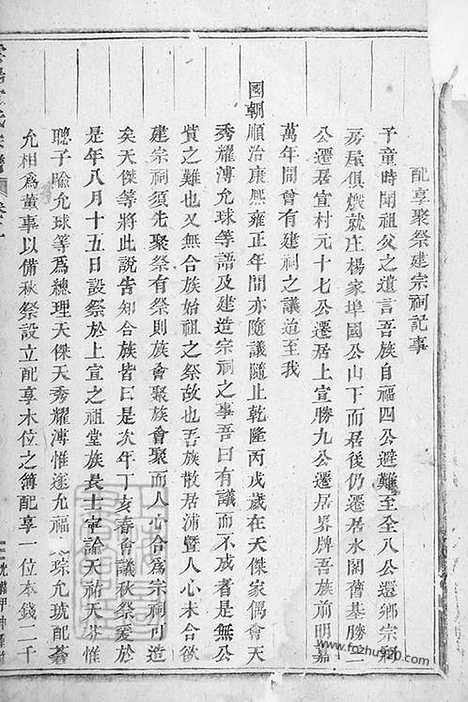 配享聚祭建宗祠記事
予童時聞祖父之遺言吾族自福四公避難至全八公還鄉宗
房屋俱燬就庄楊家埠國公山下而居後仍遷居水閣舊基勝二
公遷居宣村元十七公遷居上宣勝九公遷居界牌吾族前明嘉
萬年間曾有建祠之議迨至我
國朝順治康熙雍正年間亦隨議隨止乾隆丙戌歲在天傑家偶會天
秀耀溥允球等語及建造宗祠之事吾曰有議而不成者是無公
貲之難也又無合族始祖之祭故也吾族散居浦暨人心未合欲
建宗祠須先聚祭有祭則族會聚而人心合為宗祠可造
矣天傑等將此說告知合族皆曰是次年丁亥春會議秋祭爰於
是年八月十五日設祭於上宣之祖堂族長士寧論天祐天芬惟
聰子賒允球等為總理天傑天秀耀溥惟遂允福琮允琥配蒼
允相為董事以備秋祭設立配享木位之簿配享一位本錢二千
www.fozhu920.com